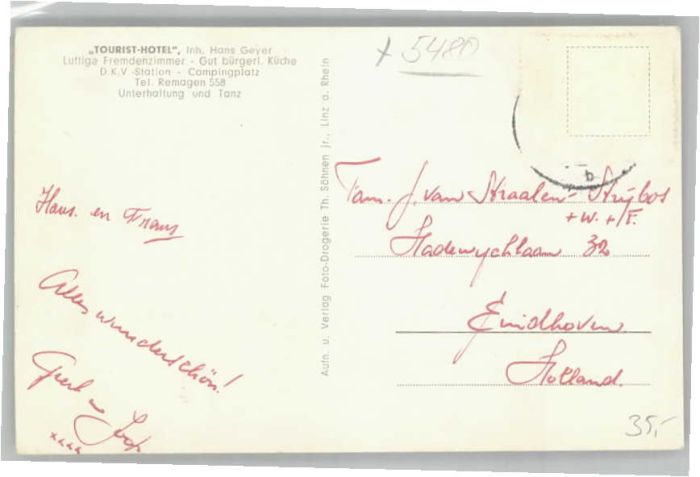 „TOURIST-HOTEL“, Inh. Hans Geyer
Luftige Fremdenzimmer - Gut bürgerl. Küche
D.K.V-Station - Campingplatz
Tel. Remagen 558
Unterhaltung und Tanz
x 5480
b
Aufn. u. Verlag Foto-Drogerie Th. Söhnen jr., Linz a. Rhein
Fam. J. van Straalen-Strijbos
+ W. + F.
Hadewychlaan 32
Eindhoven
Holland.
Hans. en Frans
Alles wunderschön!
xxxx
35,-